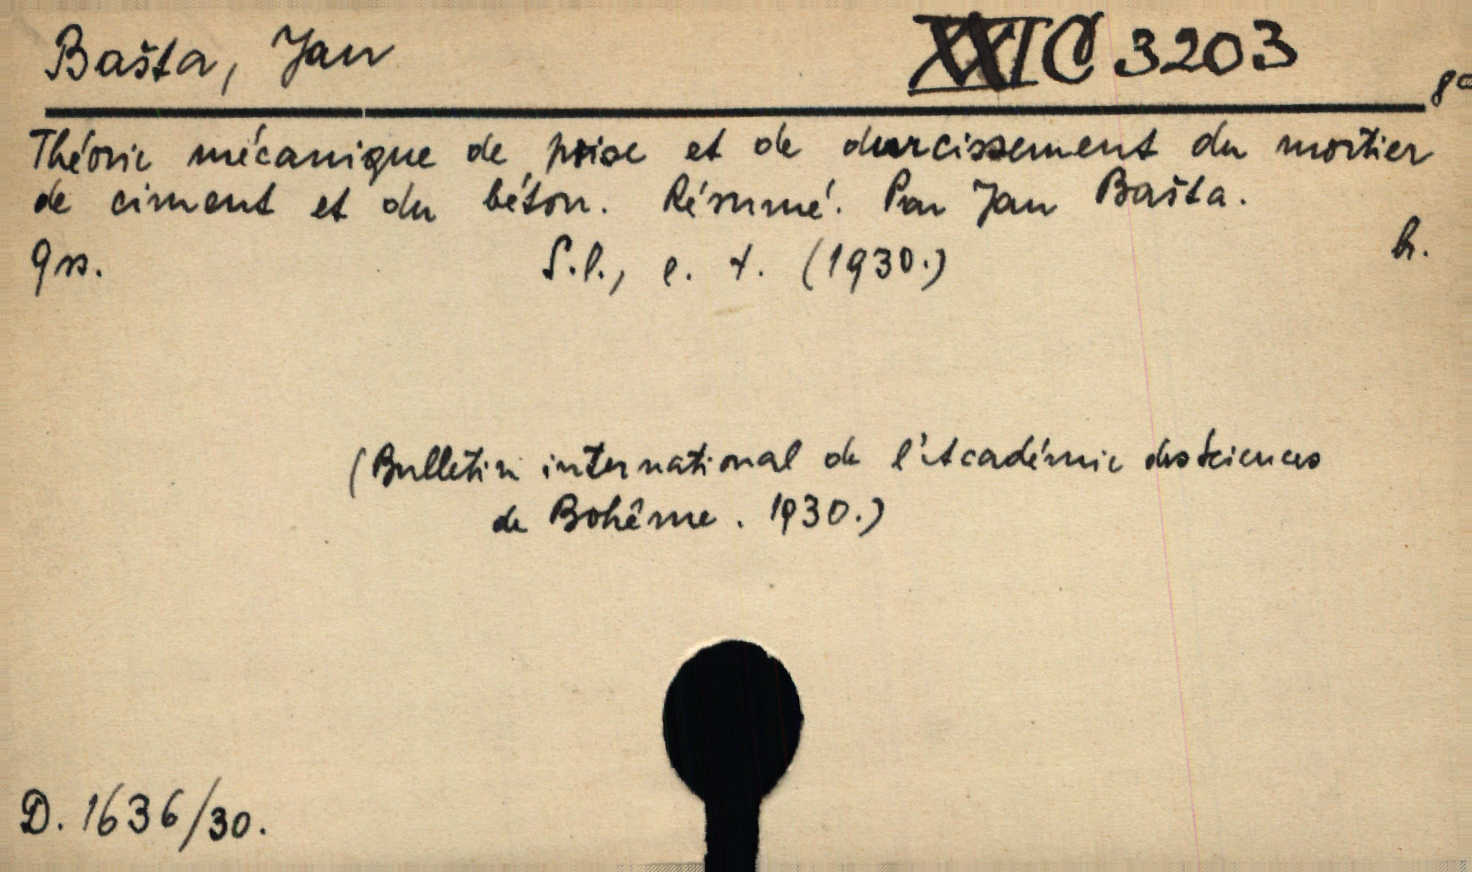 Bašta, Jan XXI C 3203 8°
Théorie mécanique de prise et de durcissement du mortier
de ciment et du béton. Résumé. Par Jan Bašta.
9 ss. S.l., e. t. (1930.) h.
(Bulletin international de l'Académie des sciences
de Bohême. 1930.)
D. 1636/30.